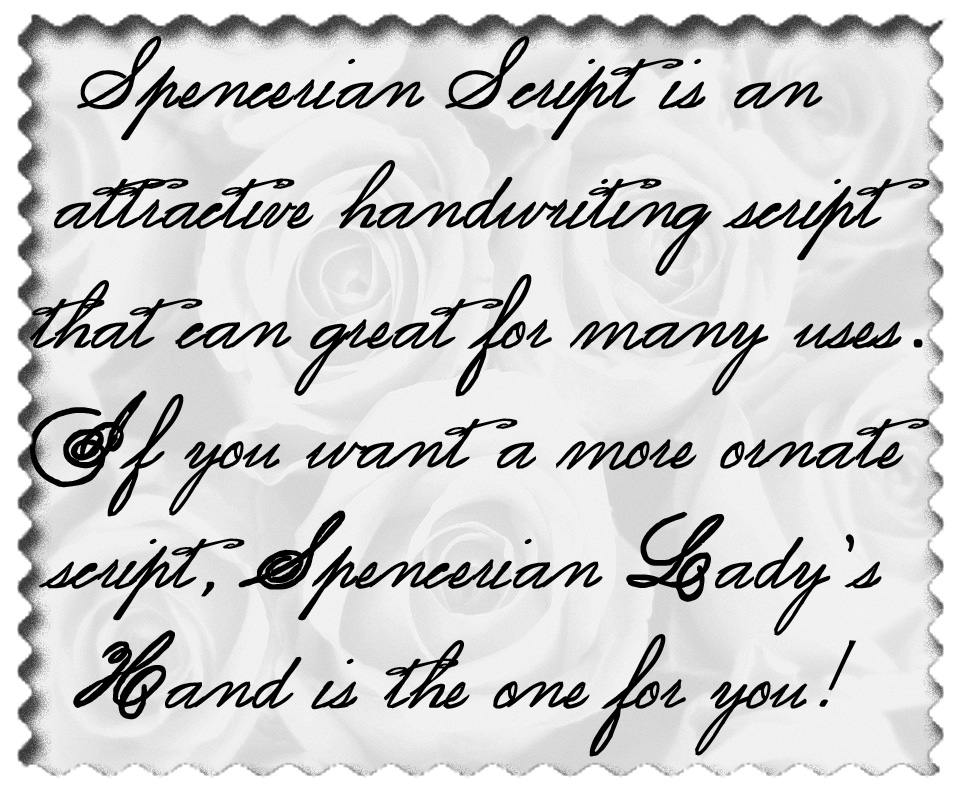 Spencerian Script is an
attractive handwriting script
that can great for many uses.
If you want a more ornate
script, Spencerian Lady's
Hand is the one for you!